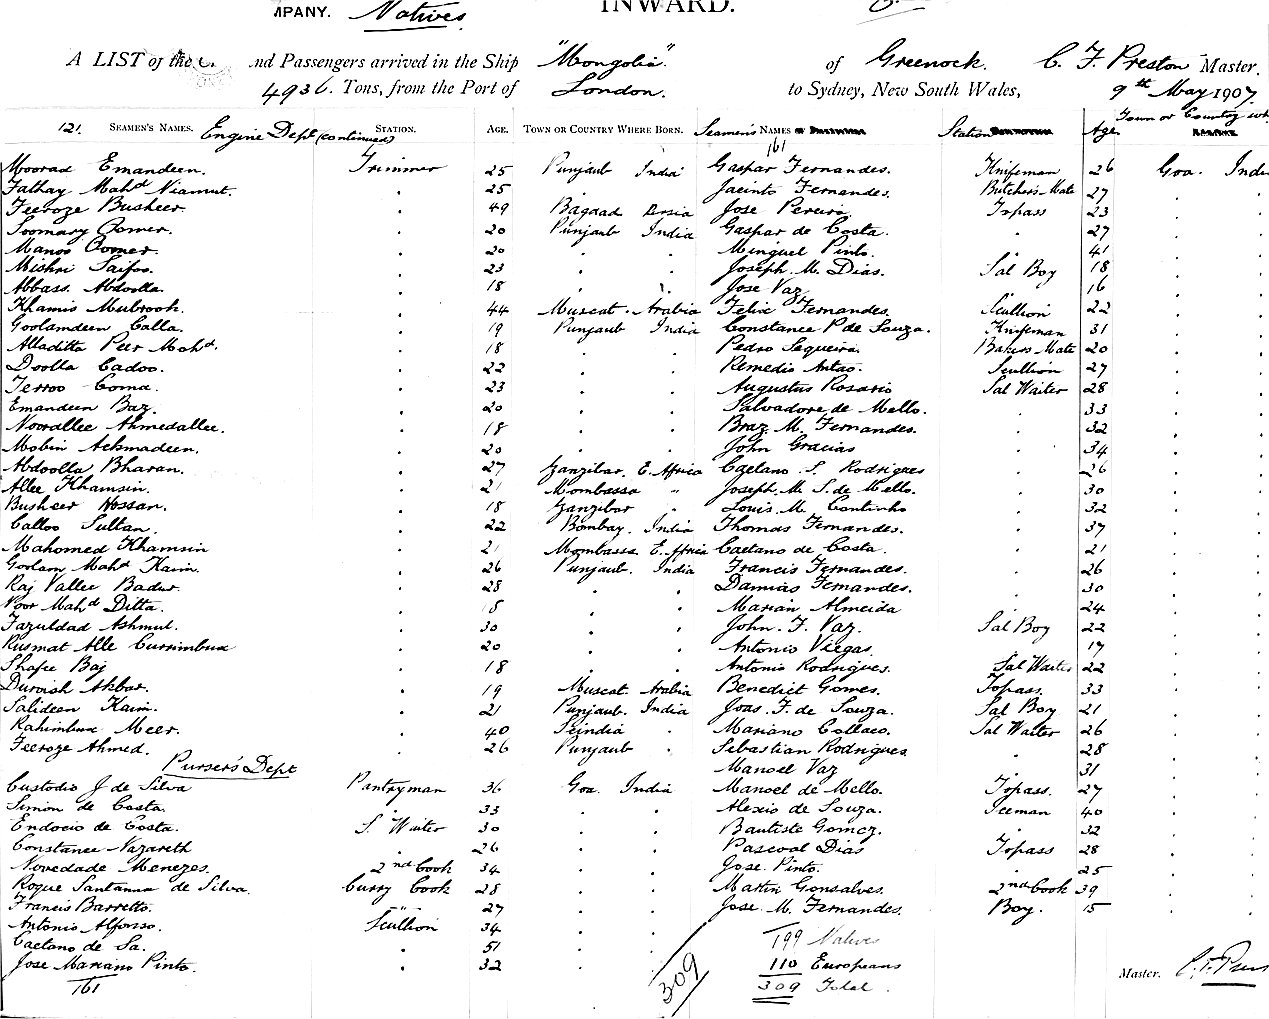 MPANY. Natives INWARD.
A LIST of the C nd Passengers arrived in the Ship "Mongolia" of Greenock. C. F. Preston Master.
4936. Tons, from the Port of London. to Sydney, New South Wales, 9th May 1907.
121. SEAMEN'S NAMES. Engine Dept (continued) STATION. AGE. TOWN OR COUNTRY WHERE BORN. Seamen's NAMES Station Age Town or Country wh
161
Moorad Emandeen. Trimmer 25 Punjaub India Gaspar Fernandes. Knifeman 26 Goa. Indi
Fathay Mahd Niamut. . 25 . . Jacinto Fernandes. Butchers Mate 27 . .
Feeroze Busheer. . 49 Bagdad Persia Jose Pereira. Topass 23 . .
Soomary Oomer. . 20 Punjaub India Gaspar de Costa. . 27 . .
Manoo Oomer. . 20 . . Minguel Pinto. . 41 . .
Mishri Saifoo. . 23 . . Joseph. M. Dias. Sal Boy 18 . .
Abbass Abdoolla. . 18 . . Jose Vaz . 16 . .
Khamis Mubrook. . 44 Muscat. Arabia Felix Fernandes. Scullion 22 . .
Goolamdeen Calla. . 19 Punjaub India Constance P. de Souza. Knifeman 31 . .
Alladitta Peer Mahd. . 18 . . Pedro Sequeira. Bakers Mate 20 . .
Doolla Cadoo. . 22 . . Remedio Antao. Scullion 27 . .
Ferroo Coma. . 23 . . Augustus Rosario Sal Waiter 28 . .
Emandeen Baz. . 20 . . Salvadore de Mello. . 33 . .
Noorallee Ahmedallee. . 18 . . Braz. M. Fernandes. . 32 . .
Mobin Ackmadeen. . 20 . . John Gracias . 34 . .
Abdoolla Bharan. . 27 Zanzibar. E. Africa Caetano. S. Rodrigues . 26 . .
Allee Khamsin. . 21 Mombassa " Joseph. M. S. de Mello. . 30 . .
Busheer Hossan. . 18 Zanzibar " Louis. M. Continho . 32 . .
Calloo Sultan. . 22 Bombay. India Thomas Fernandes. . 37 . .
Mahomed Khamsin . 21 Mombassa E. Africa Caetano de Costa. . 21 . .
Goolam Mahd Karim. . 26 Punjaub. India Francis Fernandes. . 26 . .
Raj Vallee Badur. . 28 . . Damias Fernandes. . 30 . .
Noor Mahd Ditta. . 18 . . Marian Almeida . 24 . .
Fazuldad Ashmut. . 30 . . John. F. Vaz. Sal Boy 22 . .
Rusmat Alle Currimbux . 20 . . Antonio Viegas. . 17 . .
Shafee Baj . 18 . . Antonio Rodrigues. Sal Waiter 22 . .
Durvish Akbar. . 19 Muscat Arabia Benedict Gomes. Topass. 33 . .
Salideen Karim. . 21 Punjaub. India Joas. F. de Souza. Sal Boy 21 . .
Rahimbux Meer. . 40 Scindia . Mariano Collaco. Sal Waiter 26 . .
Feeroze Ahmed. . 26 Punjaub . Sebastian Rodrigues . 28 . .
Purser's Dept Manoel Vaz . 31 . .
Custodio J de Silva Pantryman 36 Goa. India Manoel de Mello. Topass. 27 . .
Simon de Costa. . 33 . . Alexio de Souza. Iceman 40 . .
Endocio de Costa. S. Waiter 30 . . Bautiste Gomez. . 32 . .
Constance Nazareth . 26 . . Pascoal Dias Topass 28 . .
Novedade Menezes. 2nd Cook 34 . . Jose. Pinto. . 25 . .
Roque Santanna de Silva. Curry Cook 28 . . Martin Gonsalves. 2nd Cook 39 . .
Francis Barretto. " 27 . . Jose. M. Fernandes. Boy. 15 . .
Antonio Alfonso. Scullion 34 . .
Caetano de Sa. . 51 . . 199 Natives
Jose Mariano Pinto. . 32 . . 110 Europeans Master. C. F. Pres
161 309 309 Total.